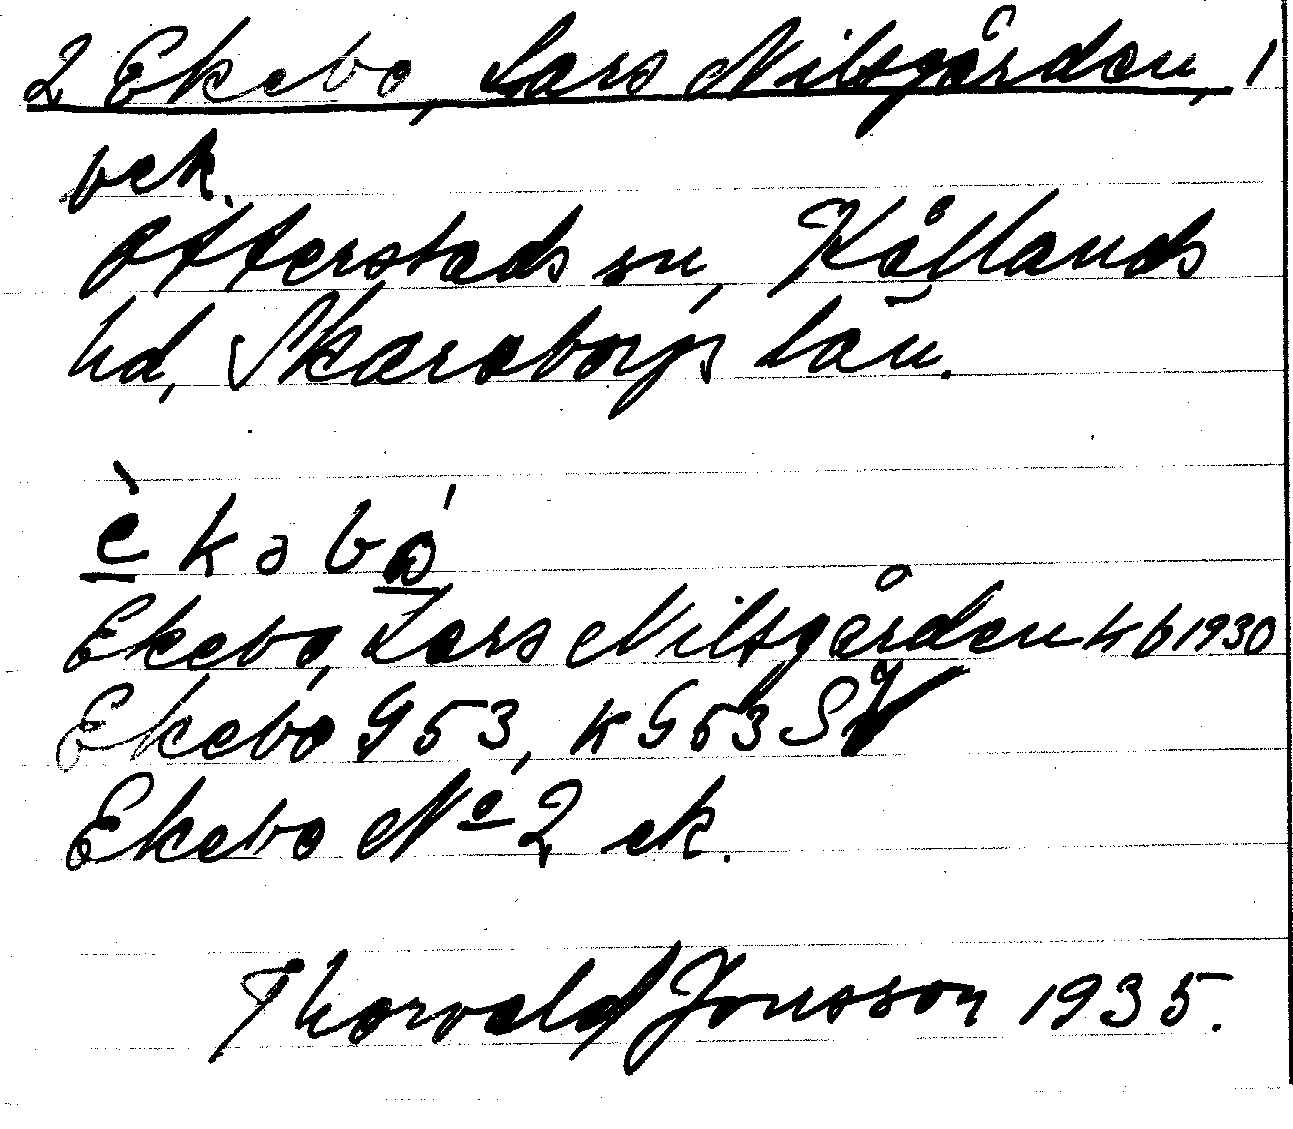 2 Ekebo, Lars Nilsgården, 1
bek.
Otterstads sn, Kållands
hd, Skaraborgs län.
è k ə b ó
Ekebo, Lars Nilsgården kb 1930
Ekebo G53, k G53 SJ
Ekebo No 2 ek.
Thorvald Jonsson 1935.